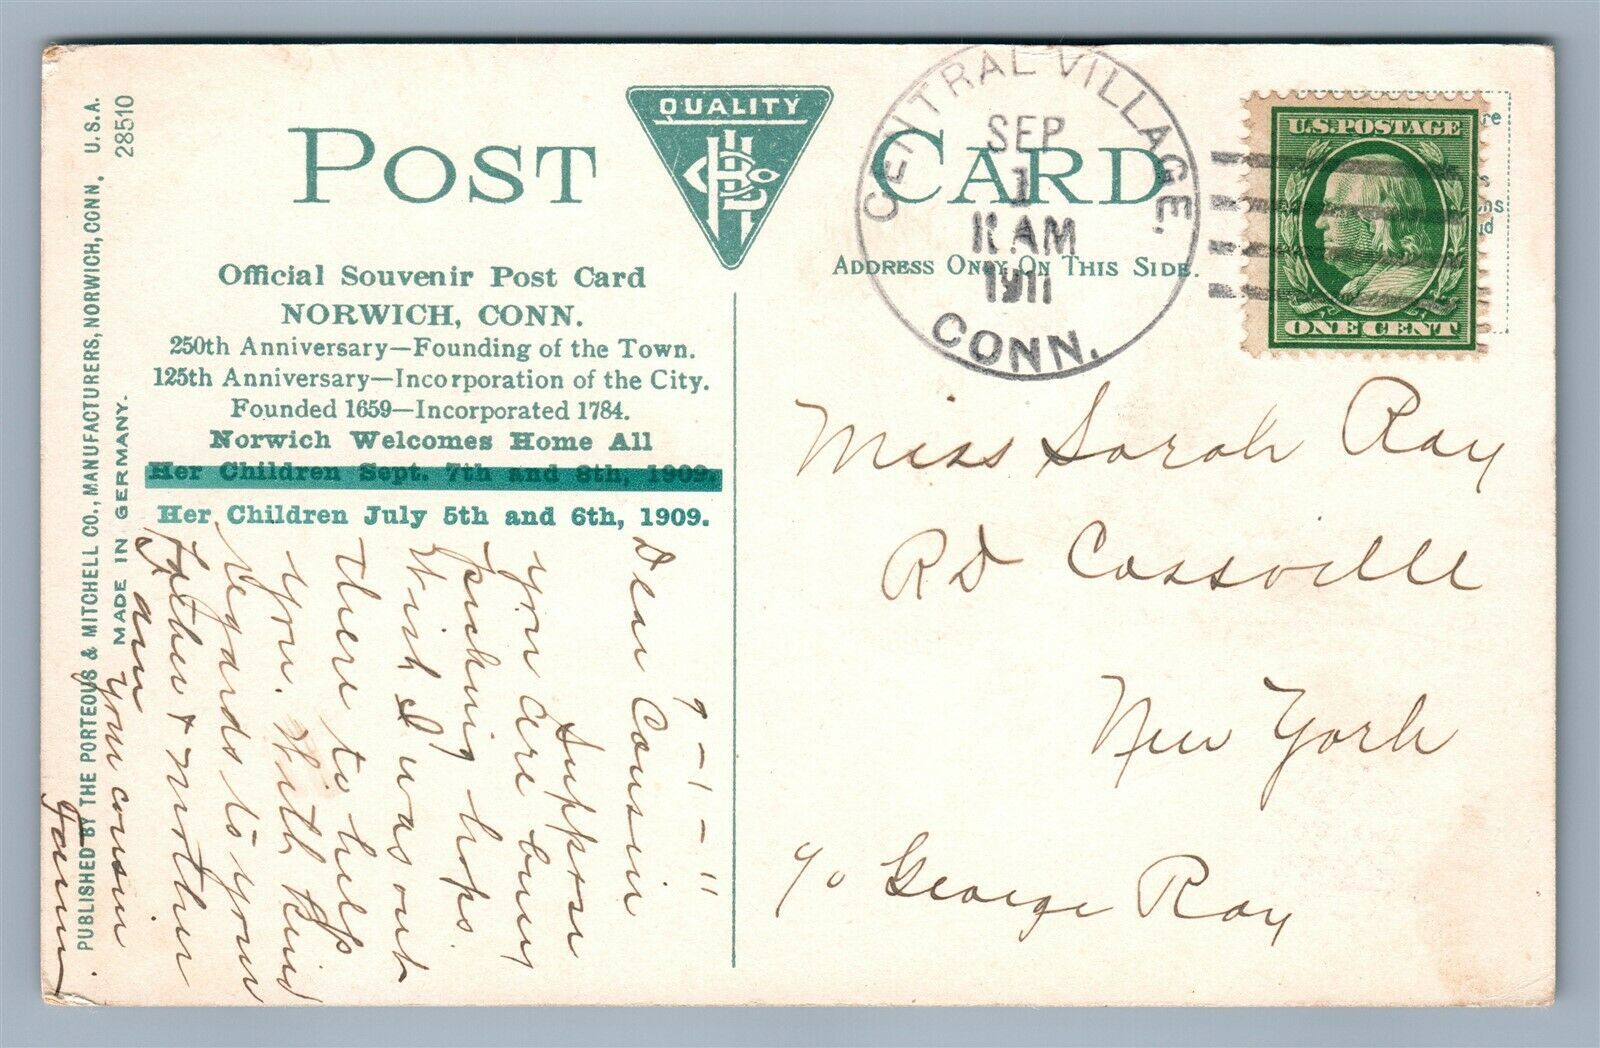 POST CARD
QUALITY
Official Souvenir Post Card
NORWICH, CONN.
250th Anniversary—Founding of the Town.
125th Anniversary—Incorporation of the City.
Founded 1659—Incorporated 1784.
Norwich Welcomes Home All
Her Children Sept. 7th and 8th, 1909.
Her Children July 5th and 6th, 1909.
ADDRESS ONLY ON THIS SIDE.
CENTRAL VILLAGE,
SEP
1
11 AM
1911
CONN.
U.S. POSTAGE
ONE CENT
Miss Sarah Ray
RD Cassville
New York
c/o George Ray
9-1-11
Dear Cousin
Suppose
you are busy
picking hops.
Wish I was out
there to help
you. With kind
regards to your
Father & Mother
I am
your cousin
PUBLISHED BY THE PORTEOUS & MITCHELL CO., MANUFACTURERS, NORWICH, CONN, U.S.A.
MADE IN GERMANY.
28510